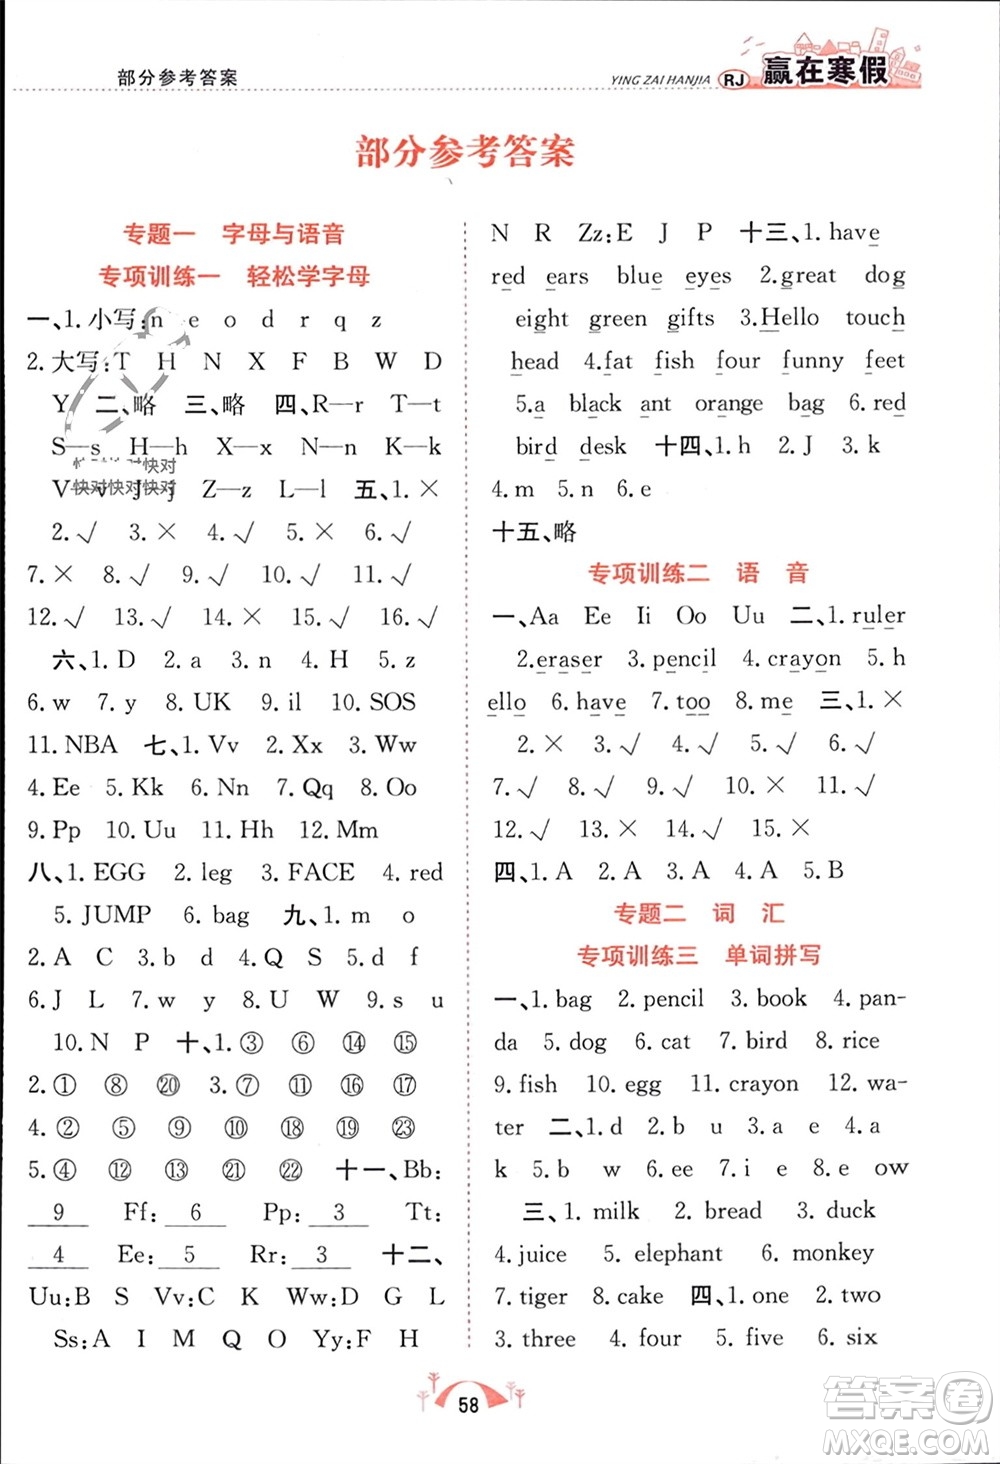 部分参考答案
YING ZAI HANJIA RJ 赢在寒假
部分参考答案
专题一 字母与语音
专项训练一 轻松学字母
一、1.小写:n e o d r q z
2.大写:T H N X F B W D
Y 二、略 三、略 四、R—r T—t
S—s H—h X—x N—n K—k
V—v J—j Z—z L—l 五、1.×
2.√ 3.× 4.√ 5.× 6.√
7.× 8.√ 9.√ 10.√ 11.√
12.√ 13.√ 14.× 15.√ 16.√
六、1.D 2.a 3.n 4.H 5.z
6.w 7.y 8.UK 9.il 10.SOS
11.NBA 七、1.Vv 2.Xx 3.Ww
4.Ee 5.Kk 6.Nn 7.Qq 8.Oo
9.Pp 10.Uu 11.Hh 12.Mm
八、1.EGG 2.leg 3.FACE 4.red
5.JUMP 6.bag 九、1.m o
2.A C 3.b d 4.Q S 5.d f
6.J L 7.w y 8.U W 9.s u
10.N P 十、1.③ ⑥ ⑭ ⑮
2.① ⑧ ⑳ 3.⑦ ⑪ ⑬ ⑰
4.② ⑤ ⑨ ⑩ ⑯ ㉓
5.④ ⑫ ⑱ ㉒ 十一、Bb:
9 Ff: 6 Pp: 3 Tt:
4 Ee: 5 Rr: 3 十二、
Uu:B S Vv:C K Ww:D G L
Ss:A I M Q O Yy:F H
N R Zz:E J P 十三、1.have
red ears blue eyes 2.great dog
eight green gifts 3.Hello touch
head 4.fat fish four funny feet
5.a black ant orange bag 6.red
bird desk 十四、1.h 2.J 3.k
4.m 5.n 6.e
十五、略
专项训练二 语 音
一、Aa Ee Ii Oo Uu 二、1.ruler
2.eraser 3.pencil 4.crayon 5.h
ello 6.have 7.too 8.me 三、1.×
2.× 3.√ 4.√ 5.× 6.√
7.√ 8.√ 9.√ 10.√ 11.×
12.√ 13.× 14.√ 15.×
四、1.A 2.A 3.A 4.A 5.B
专题二 词 汇
专项训练三 单词拼写
一、1.bag 2.pencil 3.book 4.pan-
da 5.dog 6.cat 7.bird 8.rice
9.fish 10.egg 11.crayon 12.wa-
ter 二、1.a 2.b u 3.e 4.a
k 5.w i 6.i e 7.i e 8.e ow
三、1.milk 2.bread 3.duck
4.juice 5.elephant 6.monkey
7.tiger 8.cake 四、1.one 2.two
3.three 4.four 5.five 6.six
58
答案卷
MXQE.COM